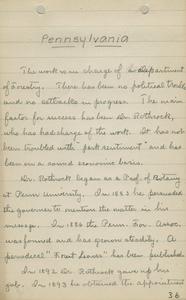 Pennsylvania
The work is in charge of a Department
of Forestry. There has been no political trouble
and no setbacks in progress. The main
factor for success has been Dr. Rothrock,
who has had charge of the work. It has not
been troubled with "past sentiment" and has
been on a sound economic basis.
Dr. Rothrock began as a Prof. of Botany
at Penn University. In 1882 he persuaded
the governor to mention the matter in his
message. In 1886 the Penn. For. Assoc.
was formed and has grown steadily. A
periodical "Forest Leaves" has been published.
In 1892 Dr. Rothrock gave up his
job. In 1893 he obtained the appointment
36